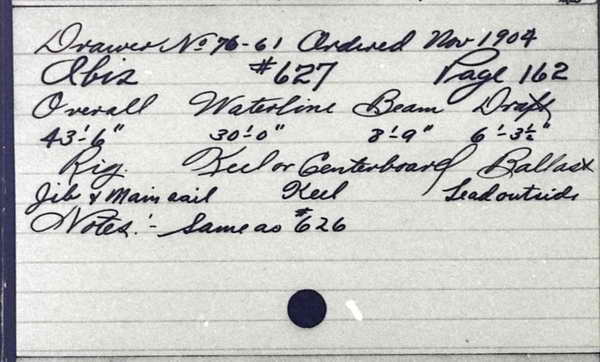 Drawer No 76-61 Ordered Nov 1904
Ibis #627 Page 162
Overall Waterline Beam Draft
43'-6" 30'-0" 8'-9" 6'-3½"
Rig. Keel or Centerboard Ballast
Jib & Mainsail Keel Lead outside
Notes:- Same as #626